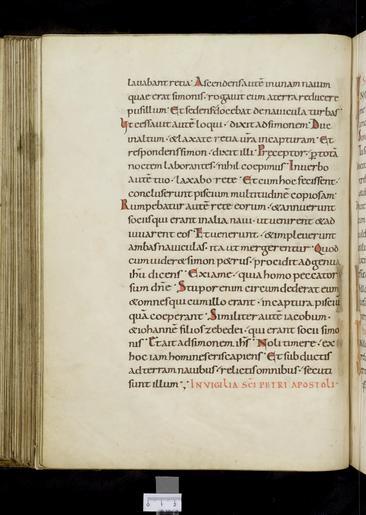 lavabant retia. Ascendens autē in unam navim
quae erat simonis. rogavit eum a terra reducere
pusillum. Et sedens docebat de navicula turbas.
Ut cessavit autē loqui. dixit ad simonem. Duc
in altum. & laxate retia ūra in capturam. Et
respondens simon. dixit illi. Praeceptor. p totā
noctem laborantes. nihil coepimus. In verbo
autē tuo. laxabo rete. Et cum hoc fecissent.
concluserunt piscium multitudinē copiosam.
Rumpebatur autē rete eorum. & annuerunt
sociis qui erant in alia navi. ut venirent & ad
iuvarent eos. Et venerunt. & impleverunt
ambas naviculas. ita ut mergerentur. Quod
cum vider& simon p&rus. procidit ad genua
ihu dicens. Exi a me. quia homo peccator
sum dn̄e. Stupor enim circum dederat eum
& omnes qui cum illo erant. in captura pisciū
quā coeperant. Similiter autē iacobum.
& iohannē filios zebedei. qui erant socii simo
nis. Et ait ad simonem ihs. Noli timere. ex
hoc iam homines eris capiens. Et subductis
ad terram navibus. relictis omnibus. secuti
sunt illum. IN VIGILIA SCI PETRI APOSTOLI.